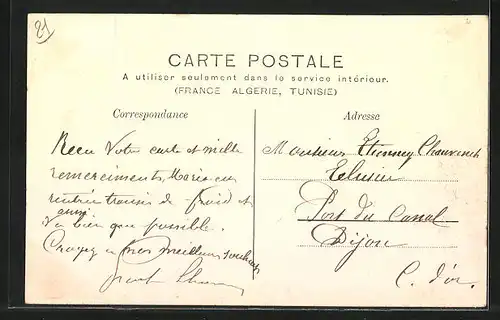 21
CARTE POSTALE
A utiliser seulement dans le service intérieur.
(FRANCE ALGERIE, TUNISIE)
Correspondance
Adresse
Recu Votre carte et mille
remerciments, Maria est
rentrée transis de froid et
va aussi bien que possible.
Croyez a nos meilleurs souhaits
Monsieur Etienney
Port du Canal
Dijon
C. d'or.